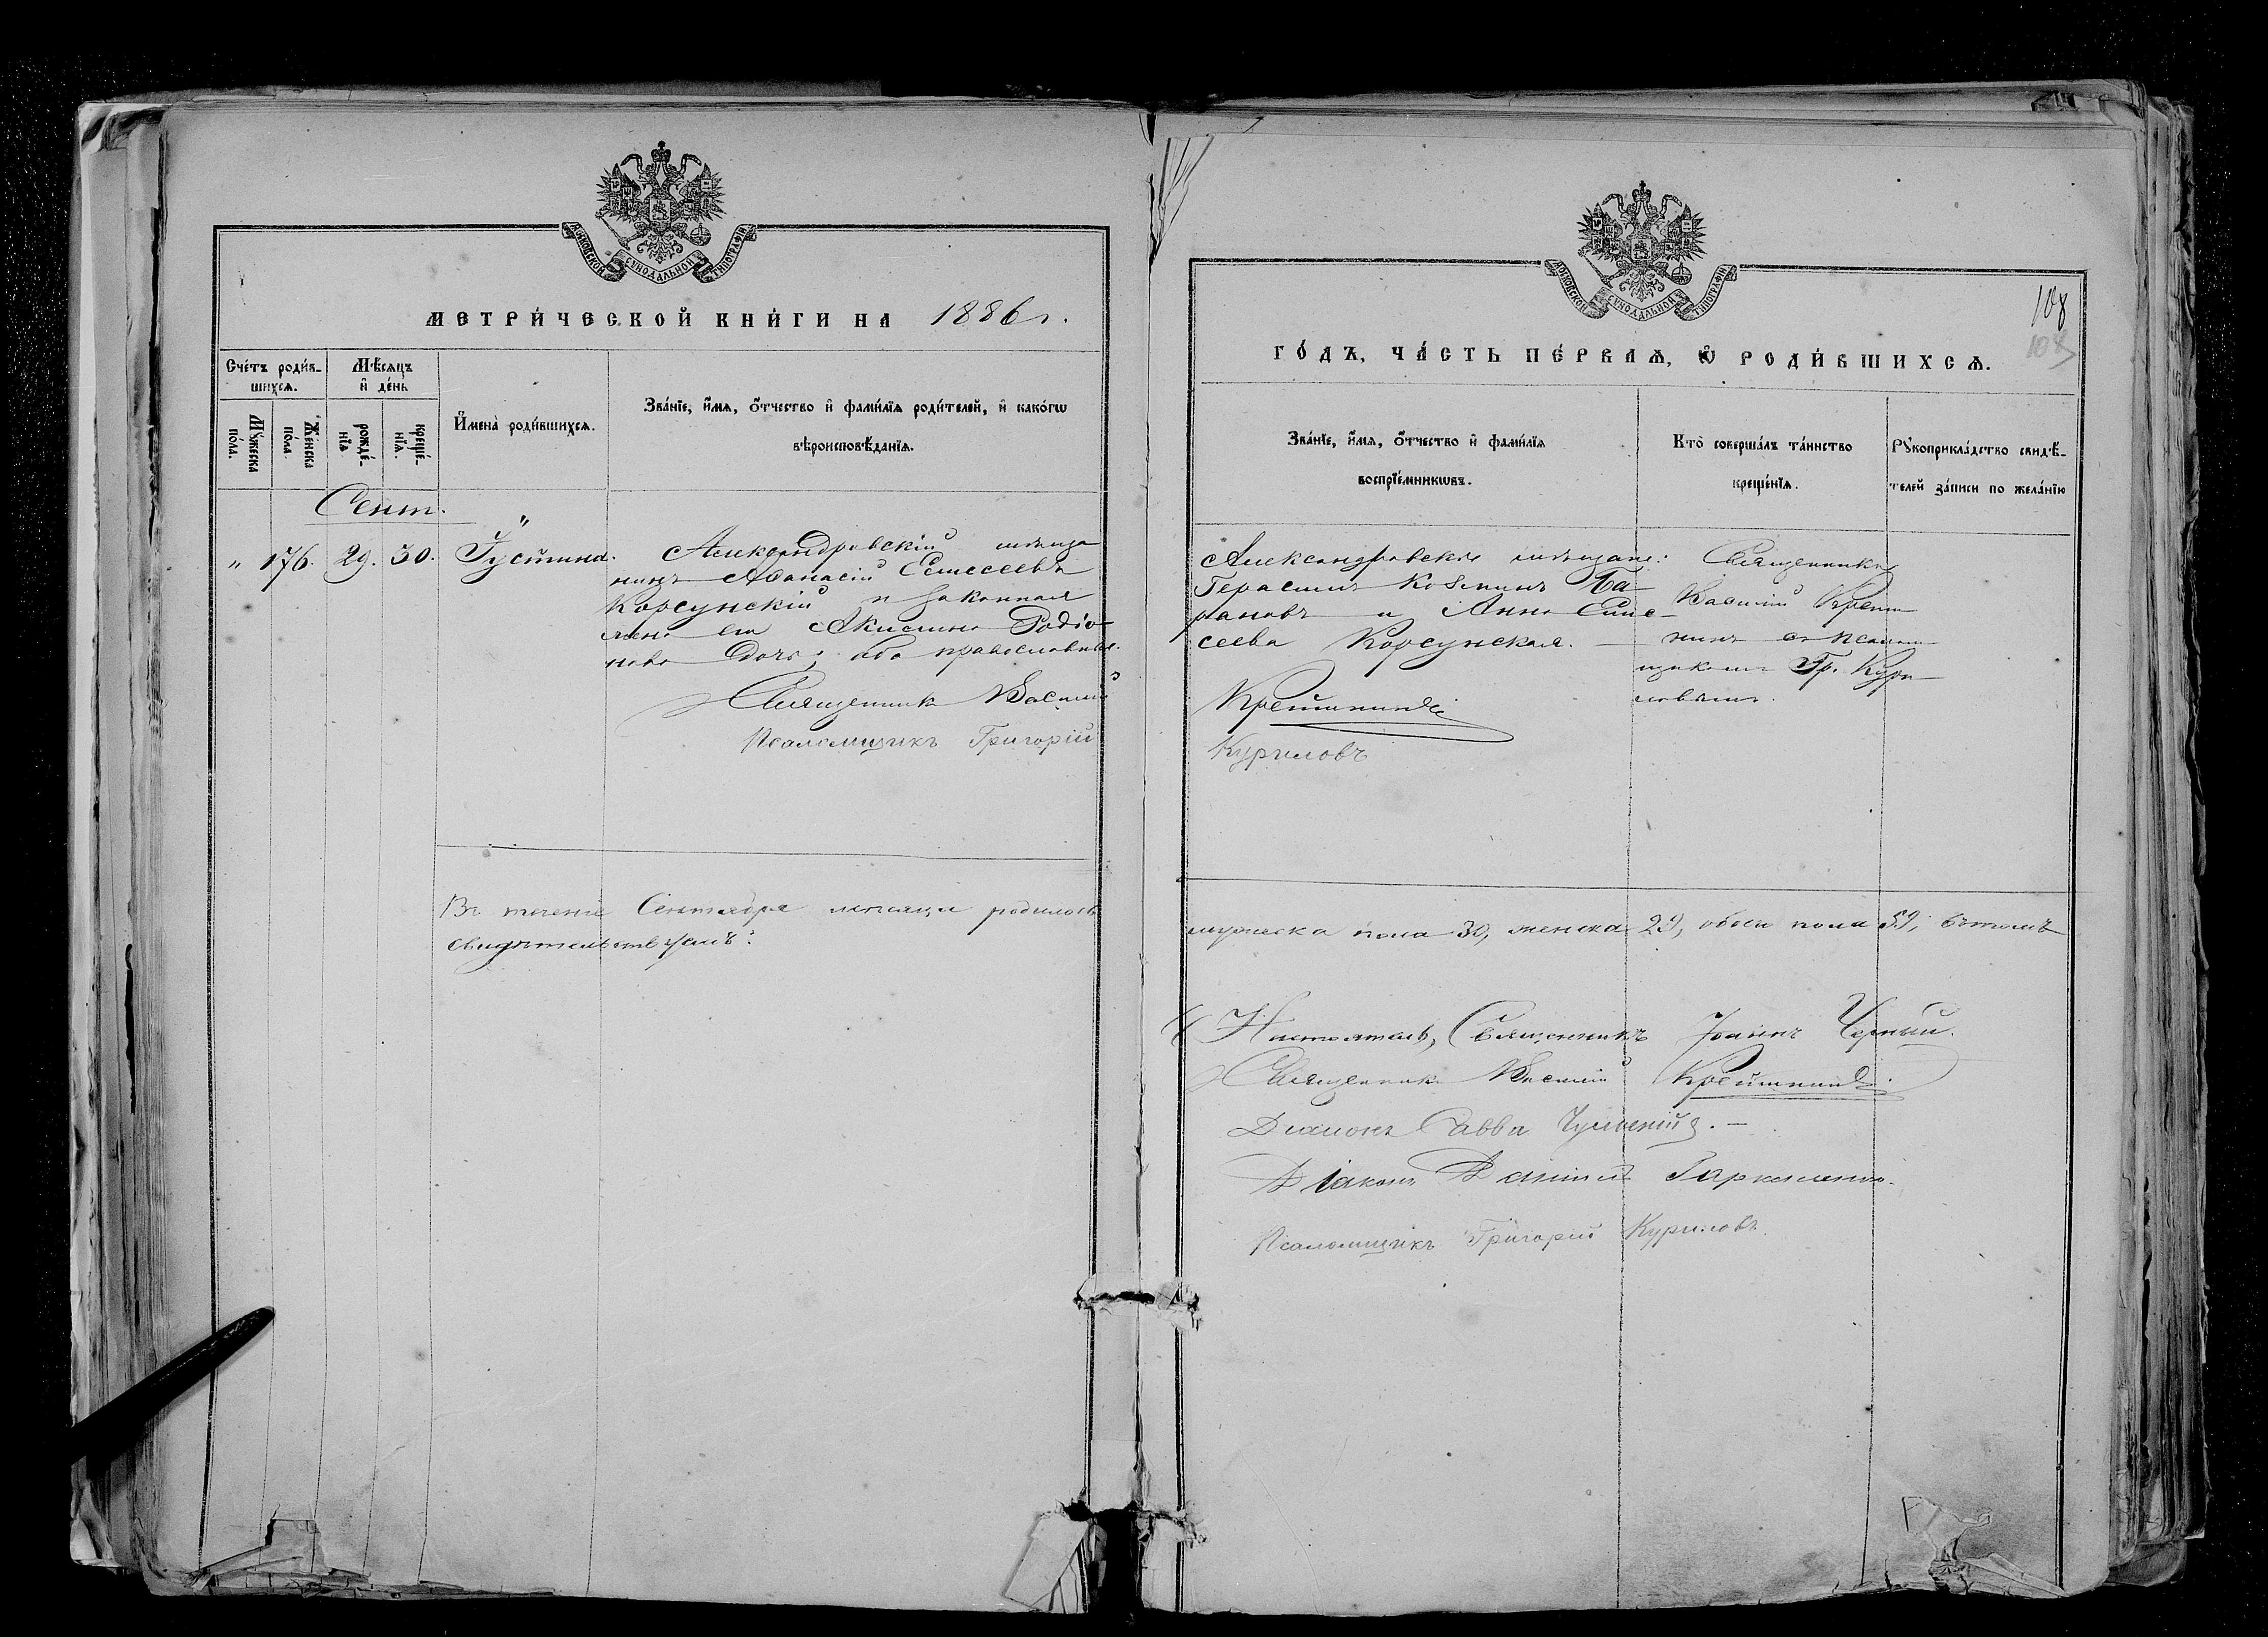 МОСКОВСКОЙ СѴНОДАЛЬНОЙ ТИПОГРАФІИ
МЕТРИ́ЧЕСКОЙ КНИ́ГИ НА 1886 г.
Сче́тъ роди́в-
шихсѧ.
Мѣ́сяцъ
и҆ де́нь
Мꙋ́жеска
по́ла.
Же́нска
по́ла.
рожде́-
нїѧ
креще́-
нїѧ.
И҆мена̀ роди́вшихсѧ.
Зва́нїе, и҆́мѧ, ѻ҆́тчество и҆ фами́лїѧ роди́телей, и҆ како́гѡ
вѣроисповѣ́данїѧ.
Сент.
" 176. 29. 30. Іустина.
Александровскій мѣща
нинъ Аѳанасій Елисеевъ
Корсунскій и законная
жена его Акилина Родіо-
нова дочь; оба православные.
Священникъ Василій
Псаломщикъ Григорій
Въ теченіе Сентября мѣсяца родилось
свидѣтельствуемъ:
МОСКОВСКОЙ СѴНОДАЛЬНОЙ ТИПОГРАФІИ
108
108
ГО́ДЪ, ЧА́СТЬ ПЕ́РВАѦ, Ѽ РОДИ́ВШИХСѦ.
Зва́нїе, и҆́мѧ, ѻ҆́тчество и҆ фами́лїѧ
воспрїе́мникѡвъ.
Кто̀ соверша́лъ та́инство
креще́нїѧ.
Рꙋкоприкла́дство свидѣ́-
телей за́писи по жела́нїю
Александровскіе мѣщане:
Герасимъ Козминъ Ба-
рановъ и Анна Елис-
сеева Корсунская.
Священникъ
Василій Крейт
нинъ съ псалом-
щикомъ Гр. Кури-
ловымъ.
Куриловъ
мужеска пола 30, женска 29, обоего пола 59, въ томъ
Настоятель, Священникъ Іоаннъ Черный.
Священникъ Василій
Діаконъ Савва
Діаконъ Даніилъ
Псаломщикъ Григорій Куриловъ.